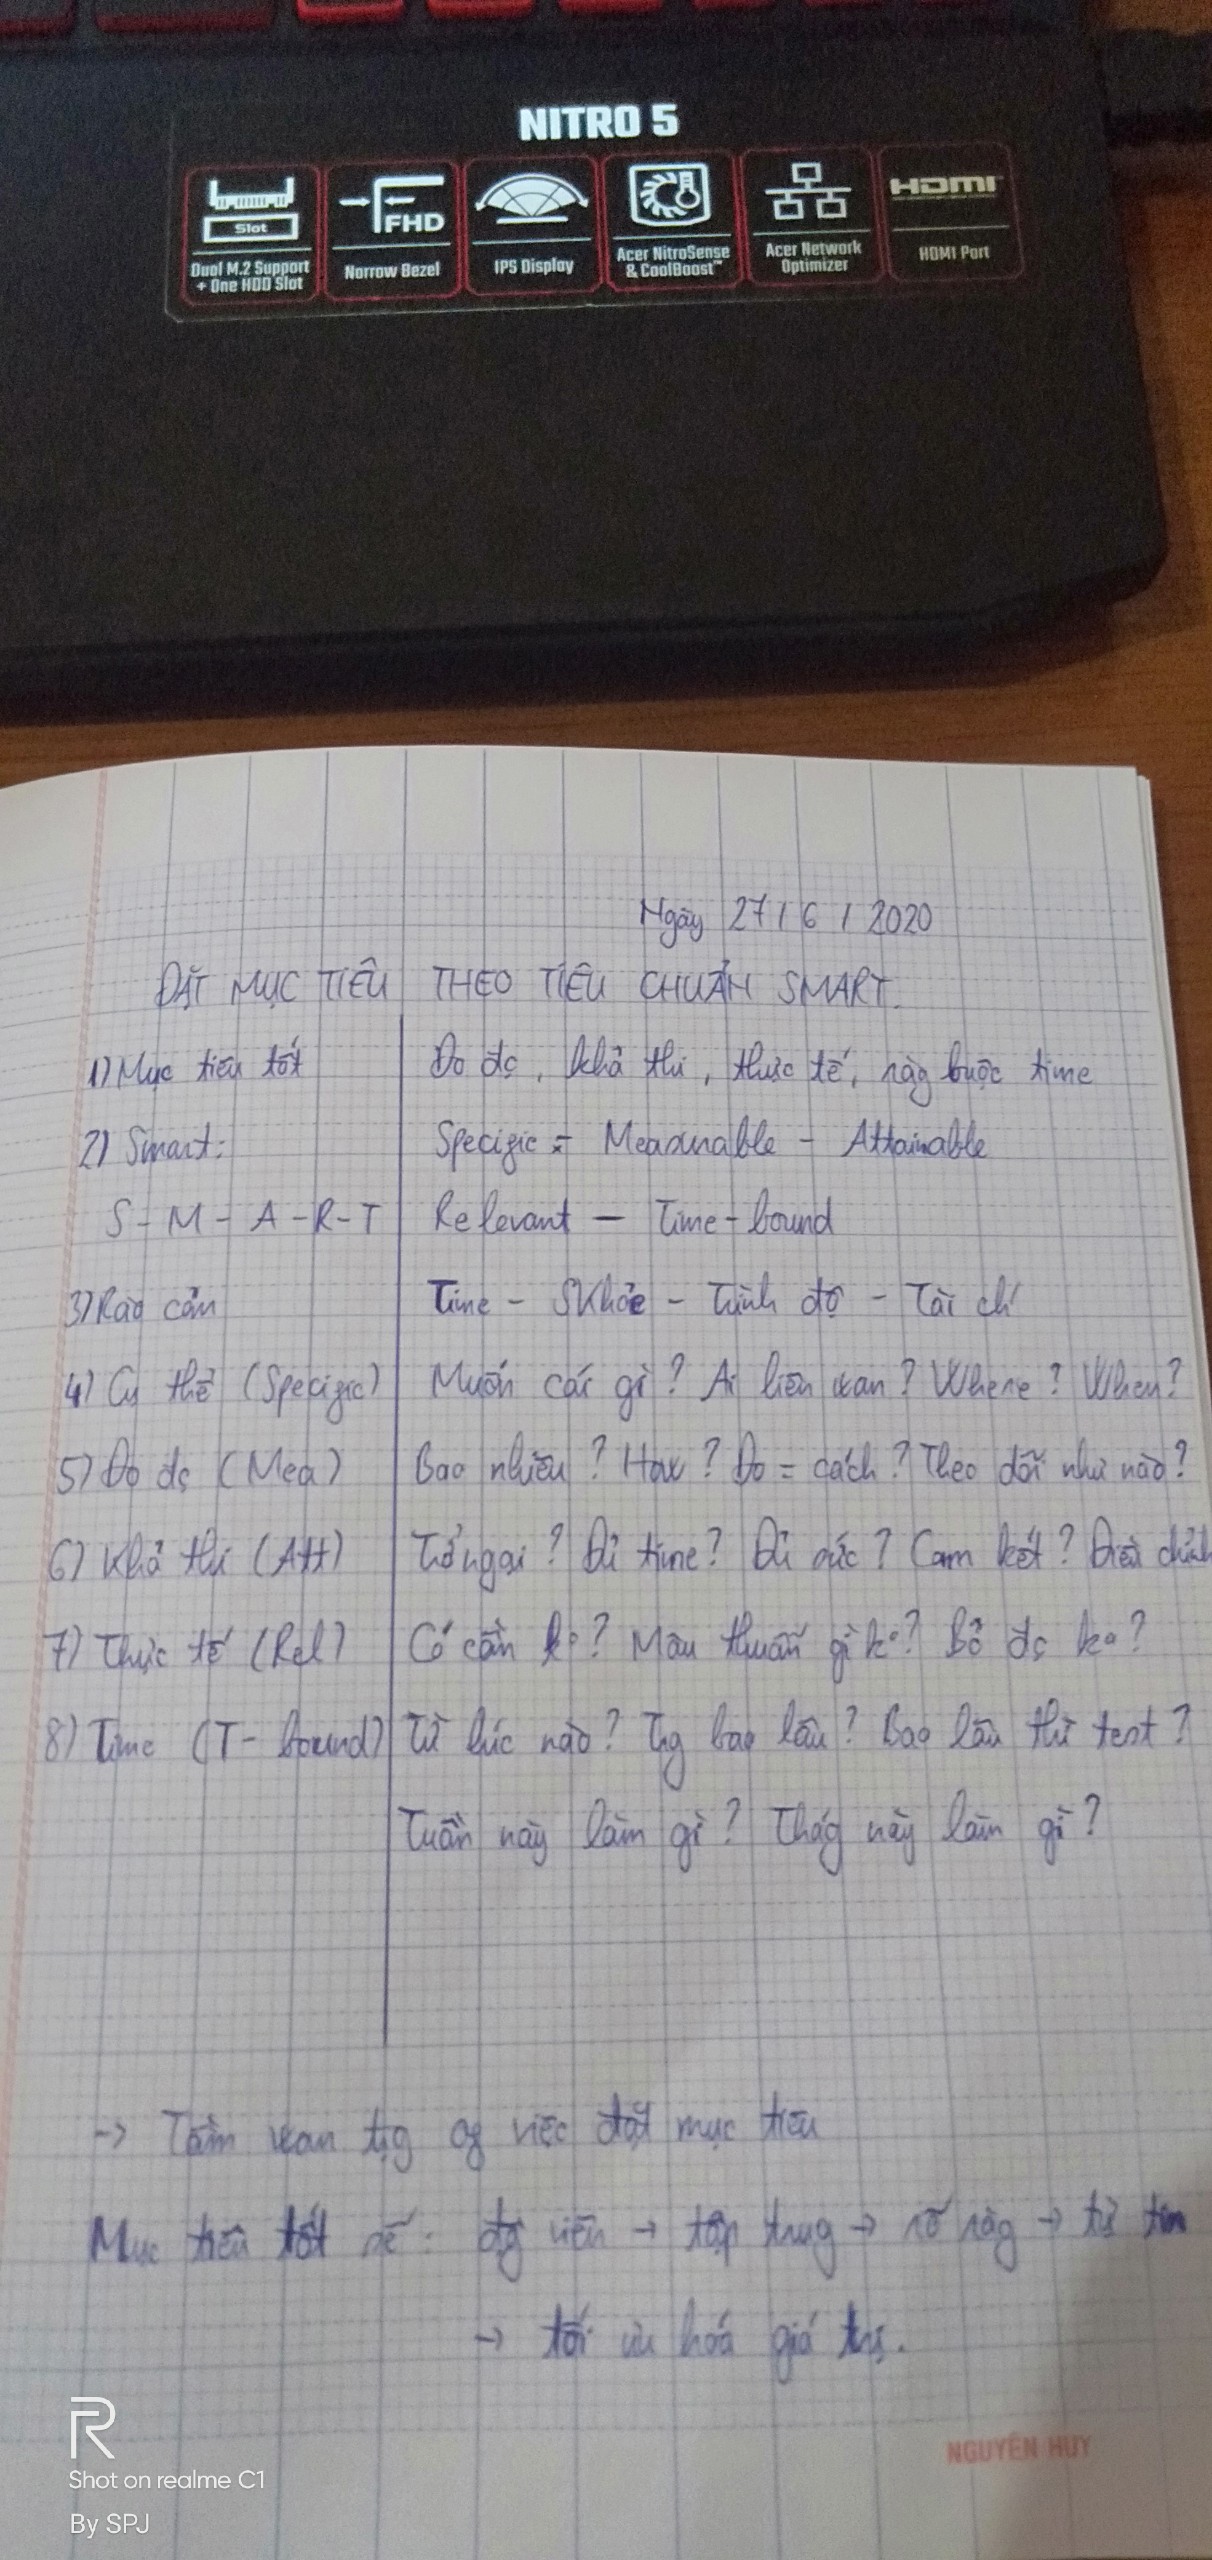 NITRO 5
Slot
FHD
HDMI
Dual M.2 Support
+ One HDD Slot
Narrow Bezel
IPS Display
Acer NitroSense
& CoolBoost™
Acer Network
Optimizer
HDMI Port
Ngày 27/6/2020
ĐẶT MỤC TIÊU THEO TIÊU CHUẨN SMART.
1) Mục tiêu tốt Đo đc, khả thi, thực tế, ràg buộc time
2) Smart: Specific - Measurable - Attainable
S - M - A - R - T Relevant - Time - bound
3) Rào cản Time - SKhỏe - Trình độ - Tài chí
4) Cụ thể (Specific) Muốn cái gì? Ai liên wan? Where? When?
5) Đo đc (Mea) Bao nhiêu? How? Đo = cách? Theo dõi như nào?
6) Khả thi (Att) Trở ngại? Đủ time? Đủ sức? Cam kết? Điều chỉnh
7) Thực tế (Rel) Có cần ko? Mâu thuẫn gì ko? Bỏ đc ko?
8) Time (T - bound) Từ lúc nào? Trg bao lâu? Bao lâu thì test?
Tuần này làm gì? Thág này làm gì?
-> Tầm wan trg of việc đặt mục tiêu
Mục tiêu tốt sẽ: độg viên -> tập trug -> rõ ràg -> tự tin
-> tối ưu hoá giá trị.
NGUYÊN HUY
R
Shot on realme C1
By SPJ